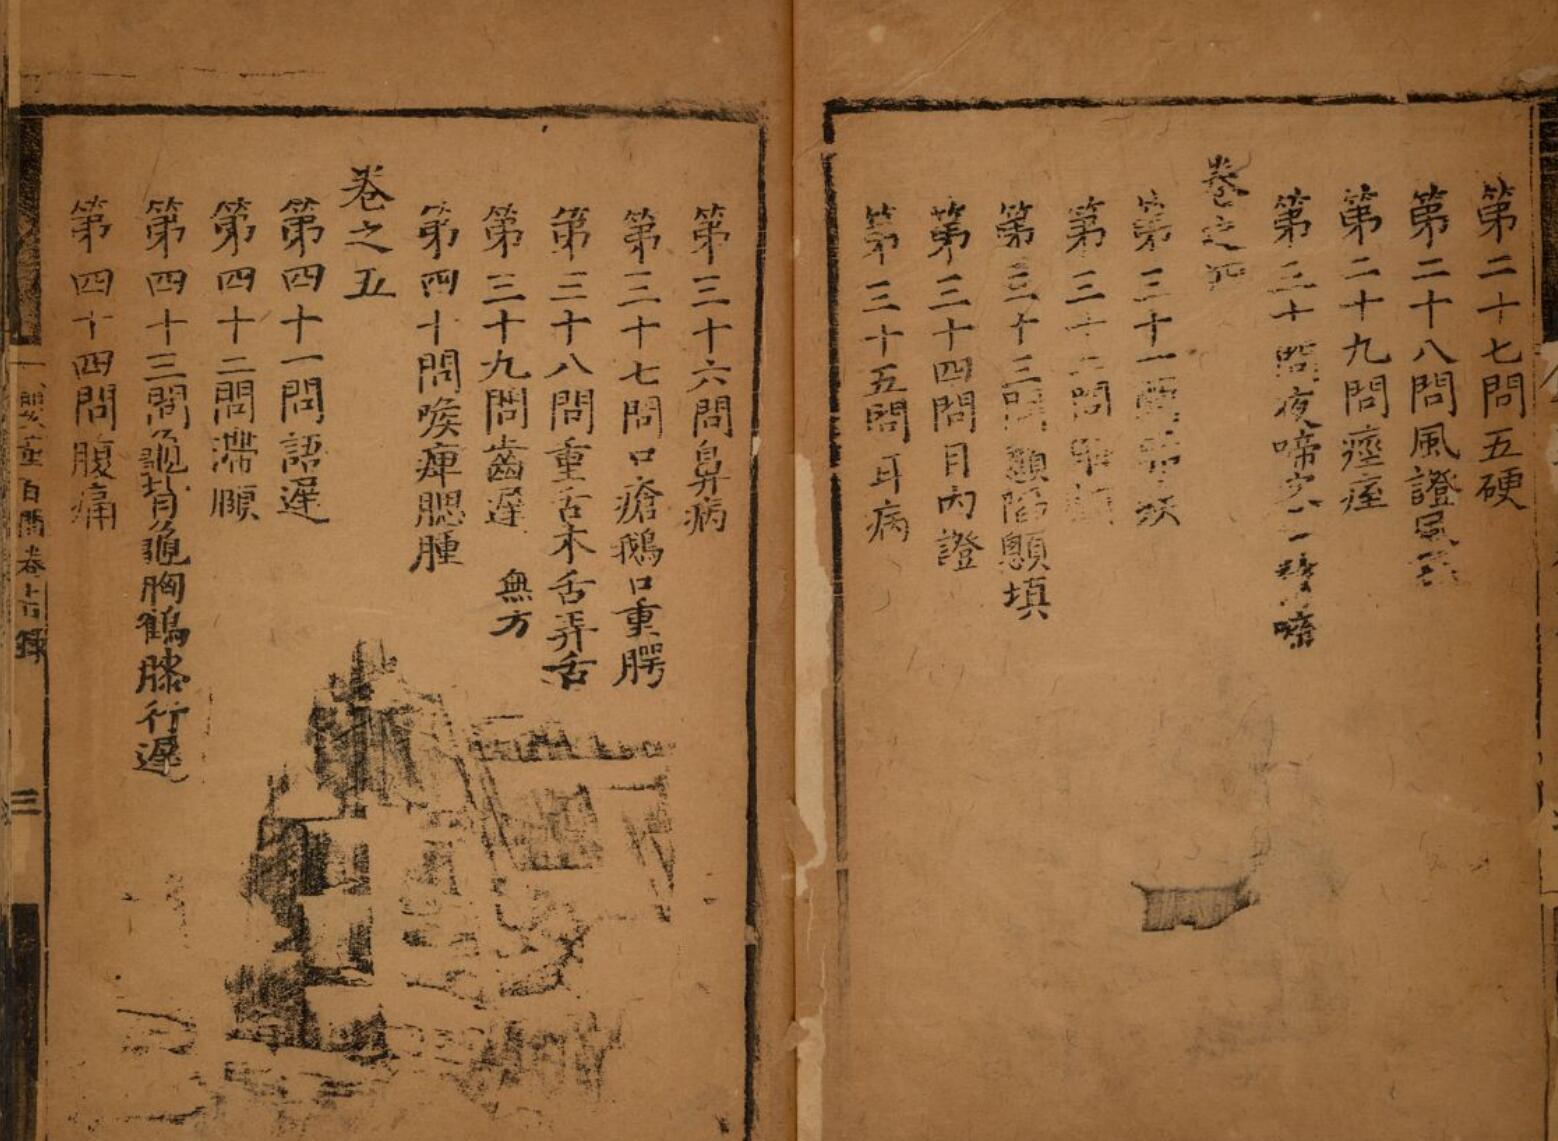 第二十七問五硬
第二十八問風證
第二十九問痙痓
第三十問夜啼
卷之四
第三十一問
第三十二問
第三十三問顖陷顖填
第三十四問目內證
第三十五問耳病
第三十六問鼻病
第三十七問口瘡鵝口重腭
第三十八問重舌木舌弄舌
第三十九問齒遲 無方
第四十問喉痺腮腫
卷之五
第四十一問語遲
第四十二問滯頤
第四十三問龜背龜胸鶴膝行遲
第四十四問腹痛
嬰童百問卷 目錄 三